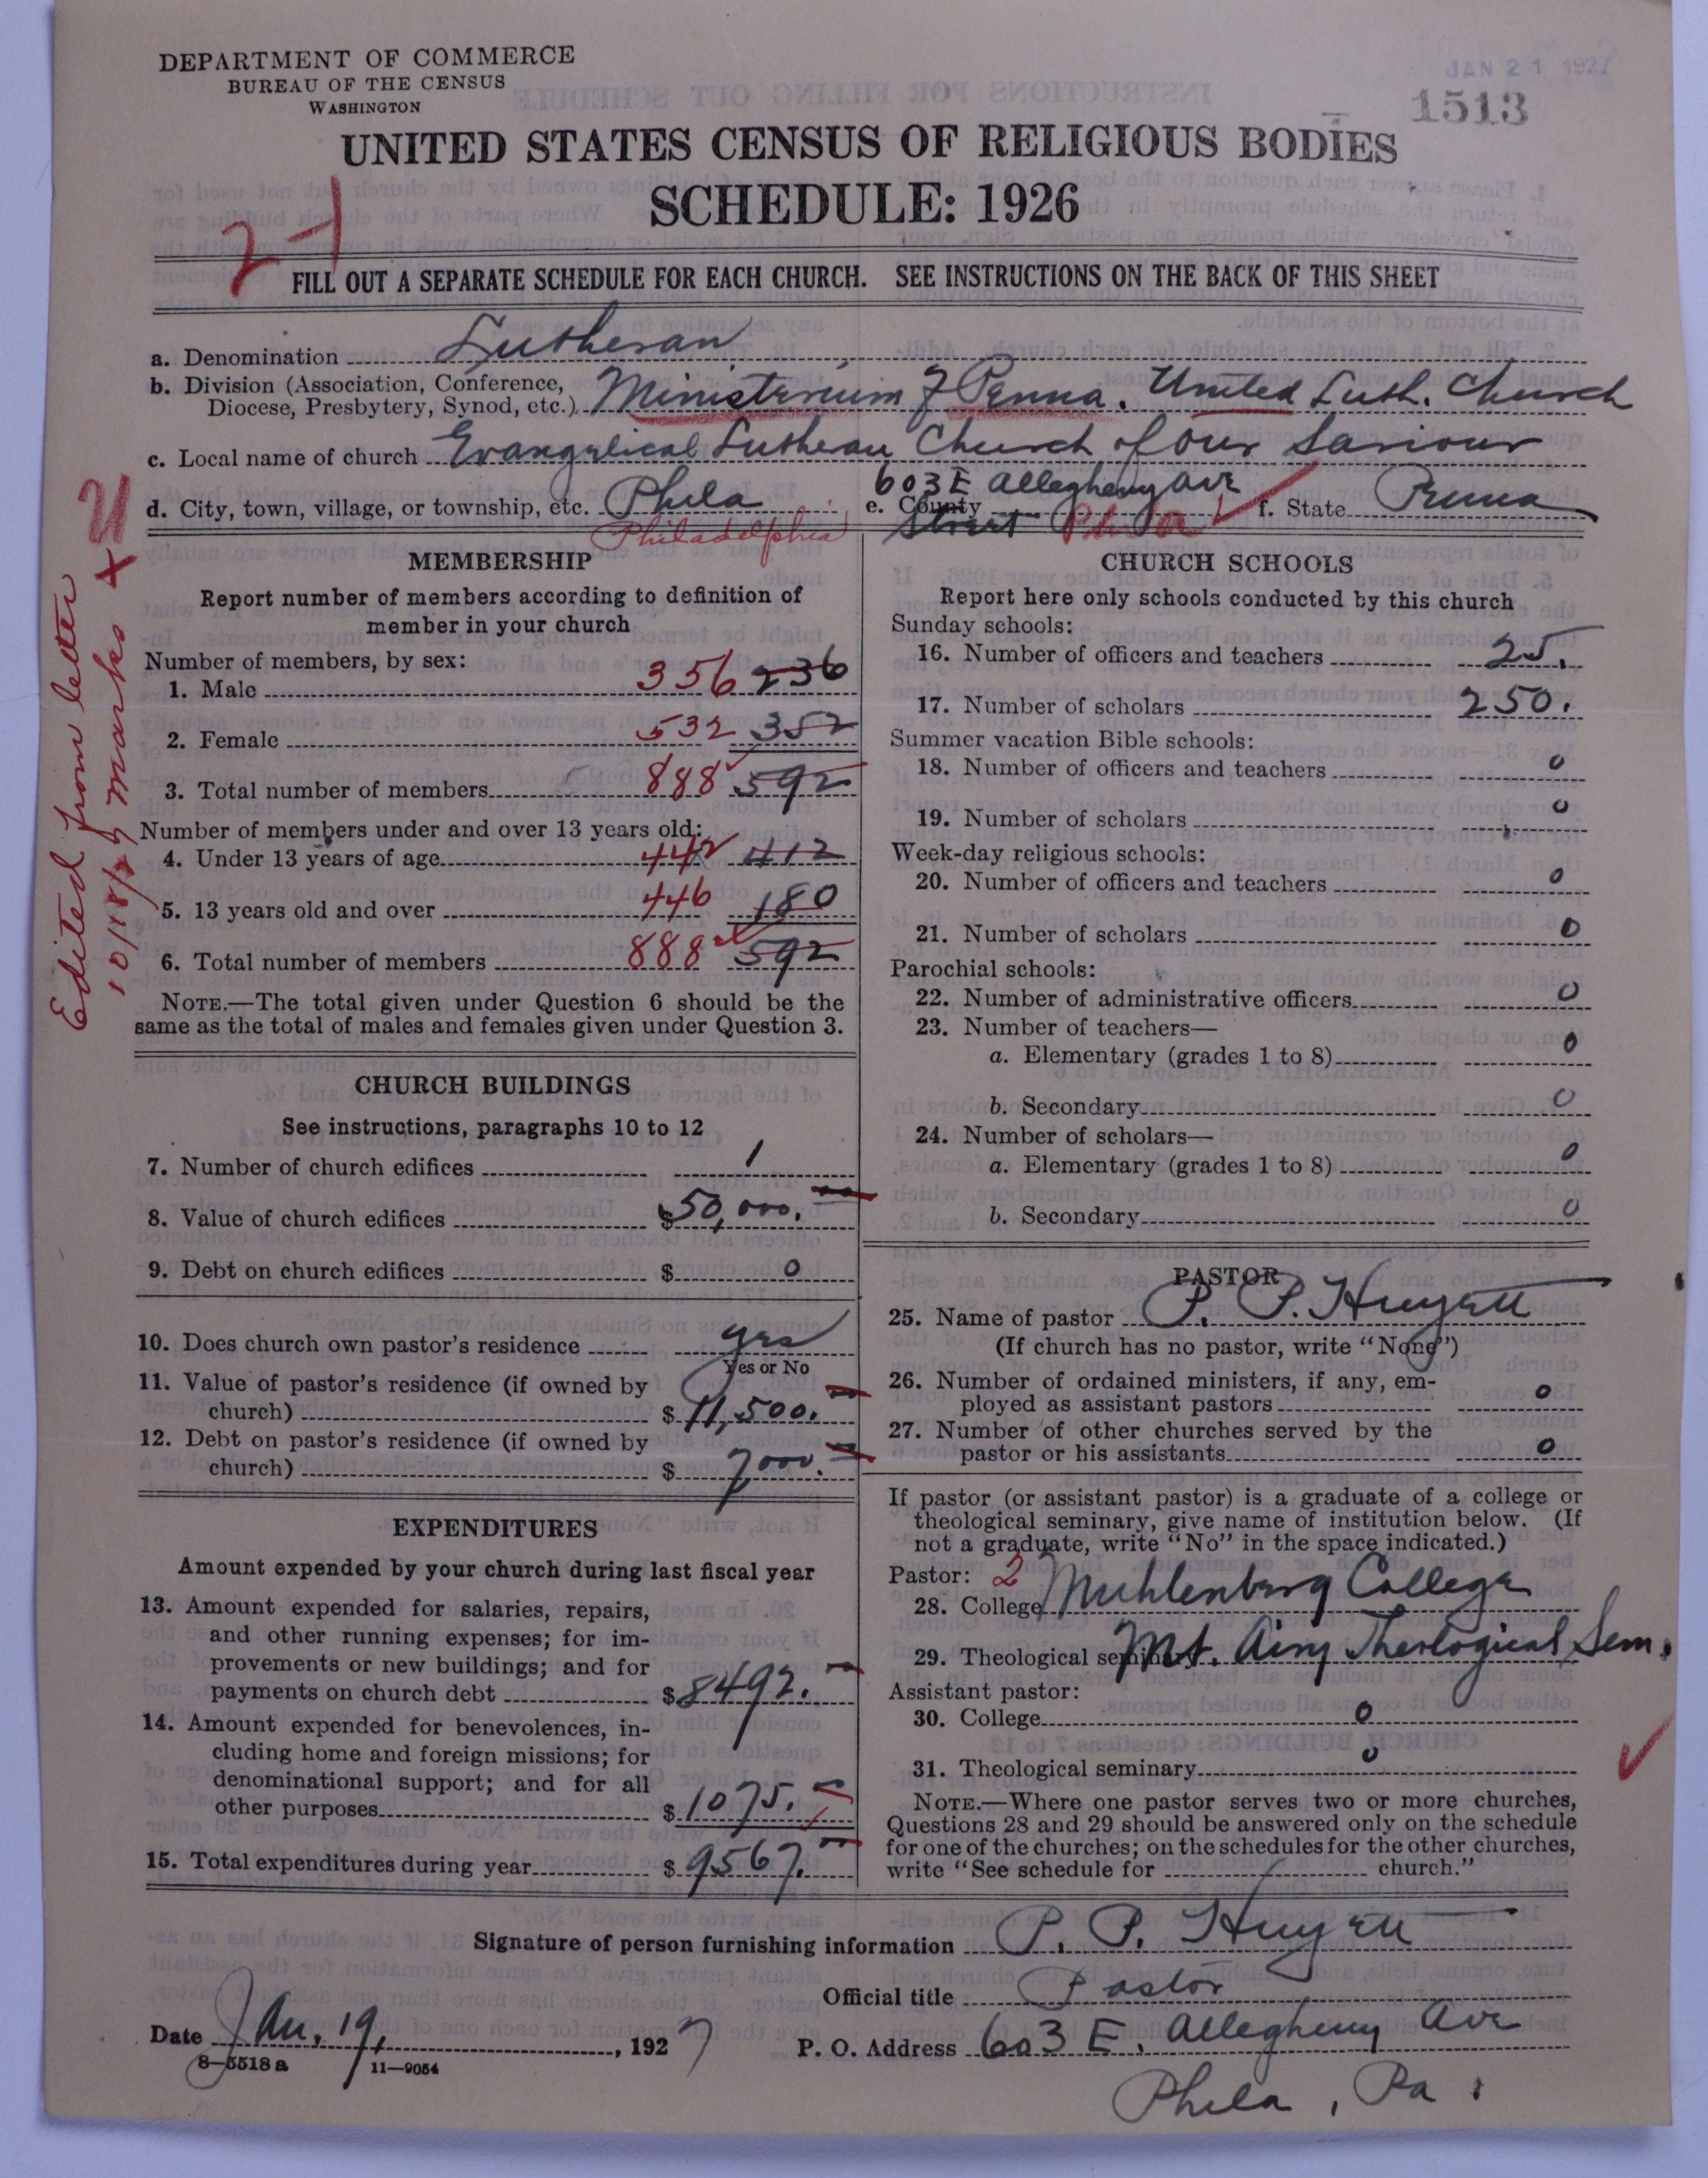 DEPARTMENT OF COMMERCE
BUREAU OF THE CENSUS
WASHINGTON
JAN 21 1927
1513
UNITED STATES CENSUS OF RELIGIOUS BODIES
SCHEDULE: 1926
FILL OUT A SEPARATE SCHEDULE FOR EACH CHURCH. SEE INSTRUCTIONS ON THE BACK OF THIS SHEET
a. Denomination Lutheran
b. Division (Association, Conference,
Diocese, Presbytery, Synod, etc.) Ministerium of Penna. United Luth. Church
c. Local name of church Evangelical Lutheran Church of Our Saviour
603 E Allegheny Ave
d. City, town, village, or township, etc. Phila e. County f. State Penna
Philadelphia Street Phila
Edited from letter
MEMBERSHIP
Report number of members according to definition of
member in your church
Number of members, by sex:
1. Male 356 236
2. Female 532 352
3. Total number of members 888 592
Number of members under and over 13 years old:
4. Under 13 years of age 442 412
5. 13 years old and over 446 180
6. Total number of members 888 592
NOTE.—The total given under Question 6 should be the
same as the total of males and females given under Question 3.
CHURCH BUILDINGS
See instructions, paragraphs 10 to 12
7. Number of church edifices 1
8. Value of church edifices $50,000.
9. Debt on church edifices $ 0
10. Does church own pastor's residence yes
Yes or No
11. Value of pastor's residence (if owned by
church) $ 11,500.
12. Debt on pastor's residence (if owned by
church) $ 7000.
EXPENDITURES
Amount expended by your church during last fiscal year
13. Amount expended for salaries, repairs,
and other running expenses; for im-
provements or new buildings; and for
payments on church debt $8492.
14. Amount expended for benevolences, in-
cluding home and foreign missions; for
denominational support; and for all
other purposes $1075.
15. Total expenditures during year $ 9567.
CHURCH SCHOOLS
Report here only schools conducted by this church
Sunday schools:
16. Number of officers and teachers 25.
17. Number of scholars 250.
Summer vacation Bible schools:
18. Number of officers and teachers 0
19. Number of scholars 0
Week-day religious schools:
20. Number of officers and teachers 0
21. Number of scholars 0
Parochial schools:
22. Number of administrative officers 0
23. Number of teachers—
a. Elementary (grades 1 to 8) 0
b. Secondary 0
24. Number of scholars—
a. Elementary (grades 1 to 8) 0
b. Secondary 0
PASTOR
25. Name of pastor P. P. Huyett
(If church has no pastor, write "None")
26. Number of ordained ministers, if any, em-
ployed as assistant pastors 0
27. Number of other churches served by the
pastor or his assistants 0
If pastor (or assistant pastor) is a graduate of a college or
theological seminary, give name of institution below. (If
not a graduate, write "No" in the space indicated.)
Pastor: 2
28. College Muhlenberg College
29. Theological seminary Mt. Airy Theological Sem.
Assistant pastor:
30. College 0
31. Theological seminary 0
NOTE.—Where one pastor serves two or more churches,
Questions 28 and 29 should be answered only on the schedule
for one of the churches; on the schedules for the other churches,
write "See schedule for church."
Signature of person furnishing information P. P. Huyett
Official title Pastor
Date Jan. 19, 1927 P. O. Address 603 E. Allegheny Ave
8-5518 a 11-9054
Phila, Pa.